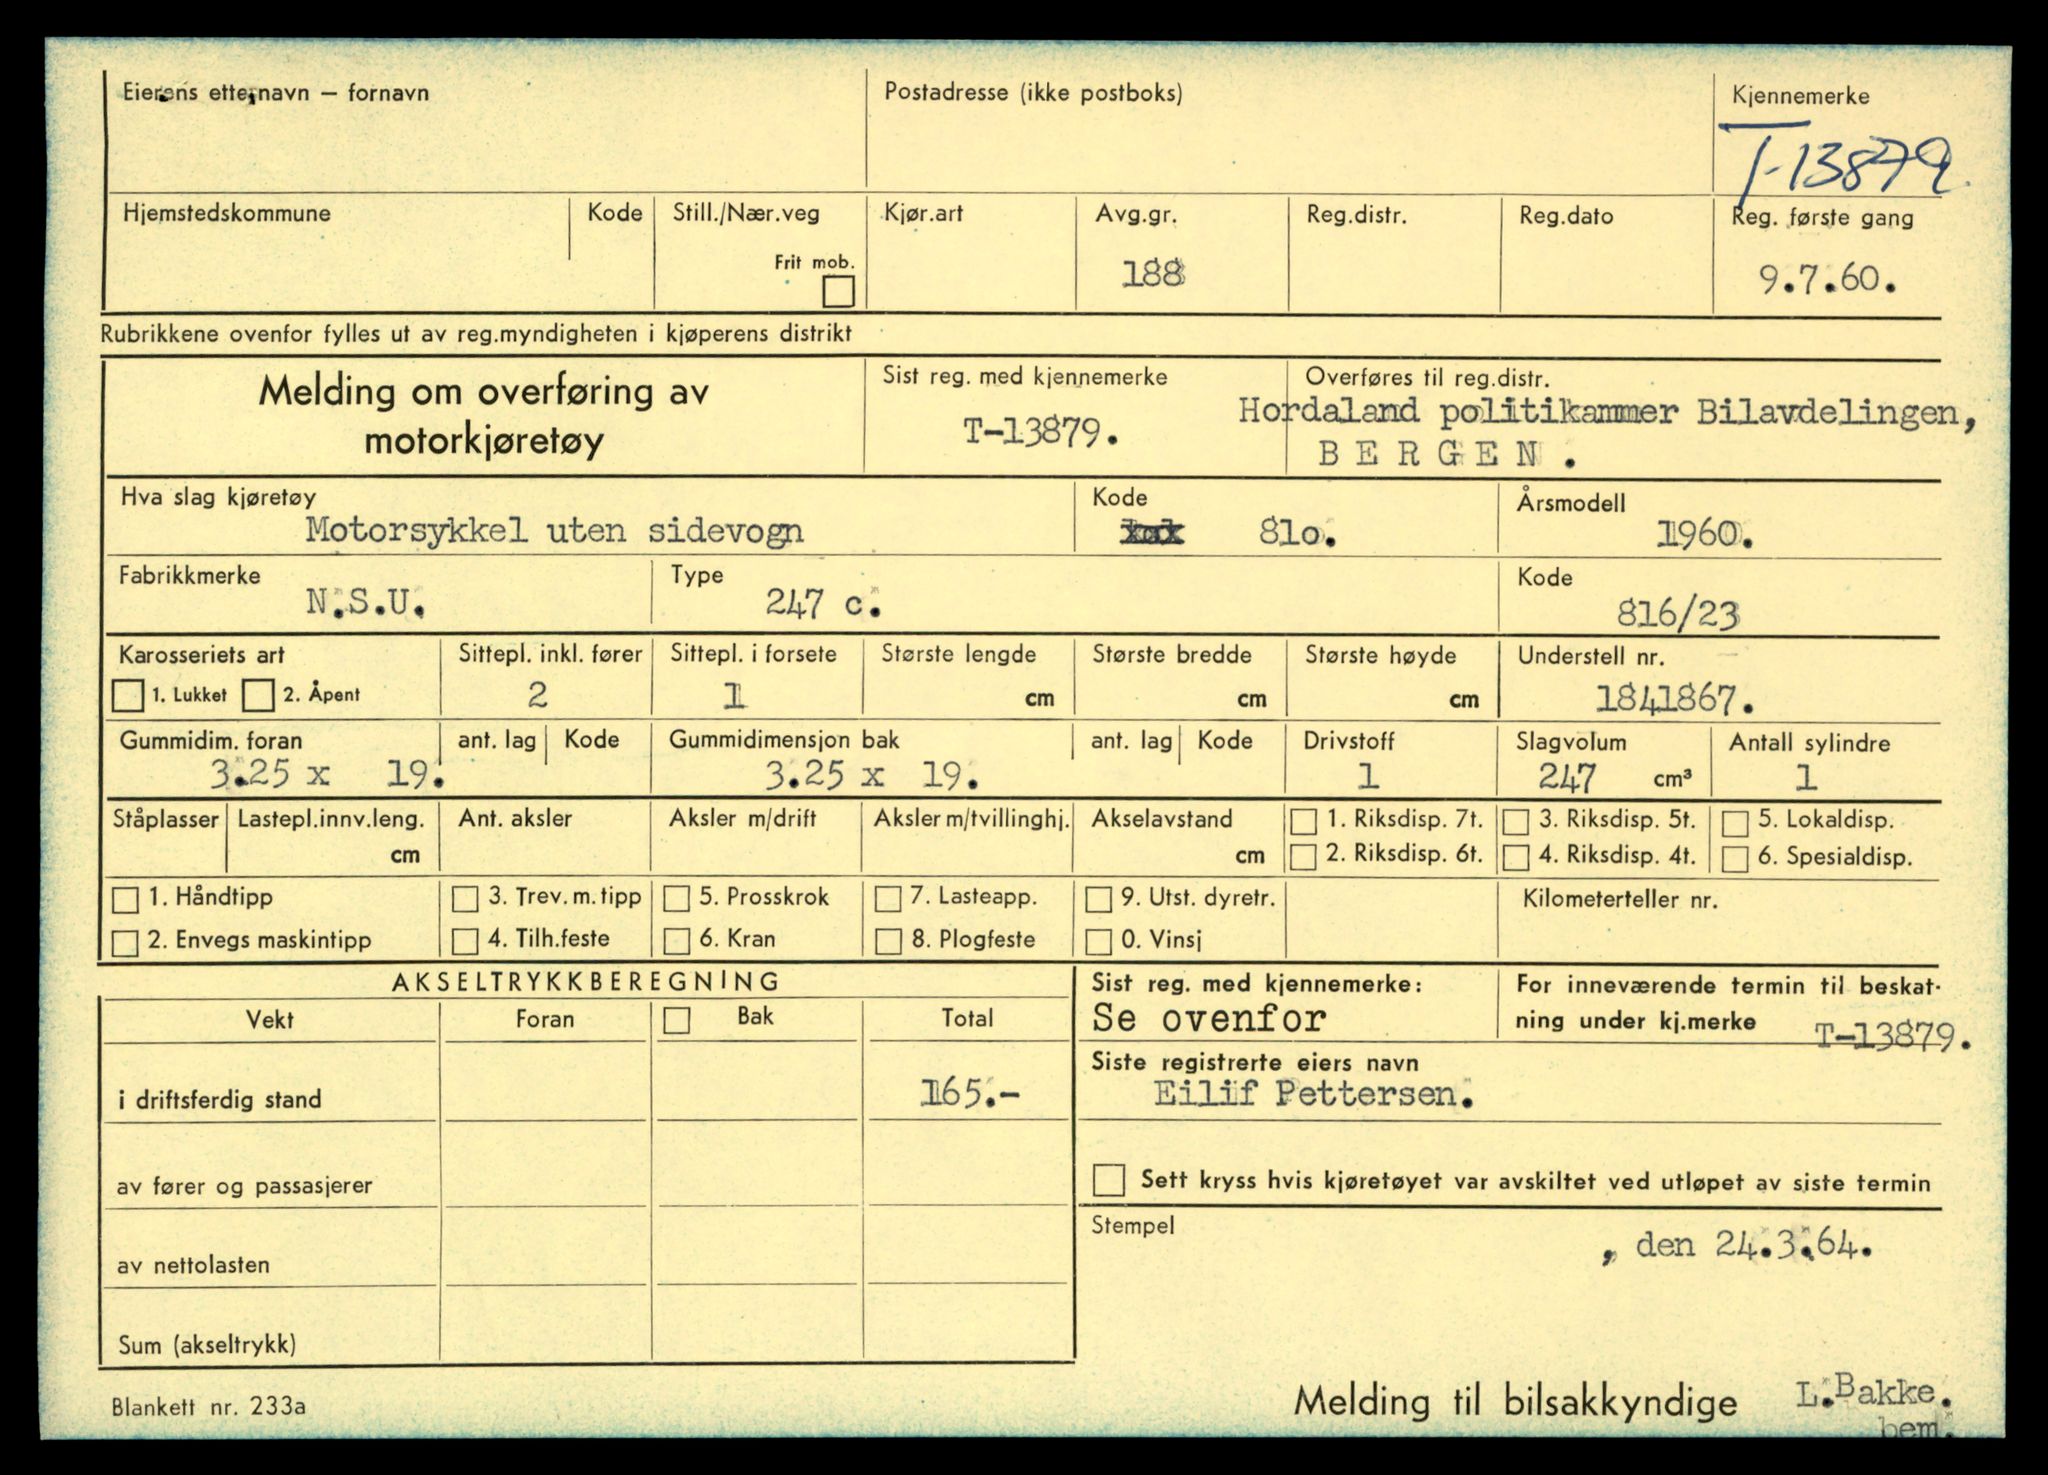 Eierens etternavn – fornavn
Postadresse (ikke postboks)
Kjennemerke
T-13879
Hjemstedskommune
Kode
Still./Nær.veg
Frit mob.
Kjør.art
Avg.gr.
188
Reg.distr.
Reg.dato
Reg. første gang
9.7.60.
Rubrikkene ovenfor fylles ut av reg.myndigheten i kjøperens distrikt
Melding om overføring av
motorkjøretøy
Sist reg. med kjennemerke
T-13879.
Overføres til reg.distr.
Hordaland politikammer Bilavdelingen,
BERGEN.
Hva slag kjøretøy
Motorsykkel uten sidevogn
Kode
81o.
Årsmodell
1960.
Fabrikkmerke
N.S.U.
Type
247 c.
Kode
816/23
Karosseriets art
1. Lukket 2. Åpent
Sittepl. inkl. fører
2
Sittepl. i forsete
1
Største lengde
cm
Største bredde
cm
Største høyde
cm
Understell nr.
1841867.
Gummidim. foran
3.25 x 19.
ant. lag
Kode
Gummidimensjon bak
3.25 x 19.
ant. lag
Kode
Drivstoff
1
Slagvolum
247 cm³
Antall sylindre
1
Ståplasser
Lastepl.innv.leng.
cm
Ant. aksler
Aksler m/drift
Aksler m/tvillinghj.
Akselavstand
cm
1. Riksdisp. 7t.
2. Riksdisp. 6t.
3. Riksdisp. 5t.
4. Riksdisp. 4t.
5. Lokaldisp.
6. Spesialdisp.
1. Håndtipp
2. Envegs maskintipp
3. Trev. m. tipp
4. Tilh.feste
5. Prosskrok
6. Kran
7. Lasteapp.
8. Plogfeste
9. Utst. dyretr.
0. Vinsj
Kilometerteller nr.
AKSELTRYKKBEREGNING
Vekt
Foran
Bak
Total
i driftsferdig stand
165.-
av fører og passasjerer
av nettolasten
Sum (akseltrykk)
Sist reg. med kjennemerke:
Se ovenfor
For inneværende termin til beskat-
ning under kj.merke T-13879.
Siste registrerte eiers navn
Eilif Pettersen.
Sett kryss hvis kjøretøyet var avskiltet ved utløpet av siste termin
Stempel
, den 24.3.64.
Blankett nr. 233a
Melding til bilsakkyndige
L.Bakke.
bem.